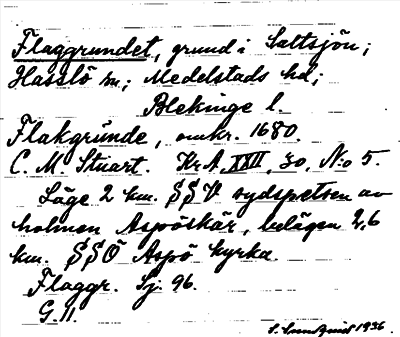 Flaggrundet, grund i Saltsjön;
Hasslö sn; Medelstads hd;
Blekinge l.
Flakgrunde, omkr. 1680.
C. M. Stuart. Kr. A. XXII, 30, N:o 5.
Läge 2 km. SSV sydspetsen av
holmen Aspöskär, belägen 2,6
km. SSÖ Aspö kyrka.
Flaggr. Sj. 96.
G. 11.
1936.